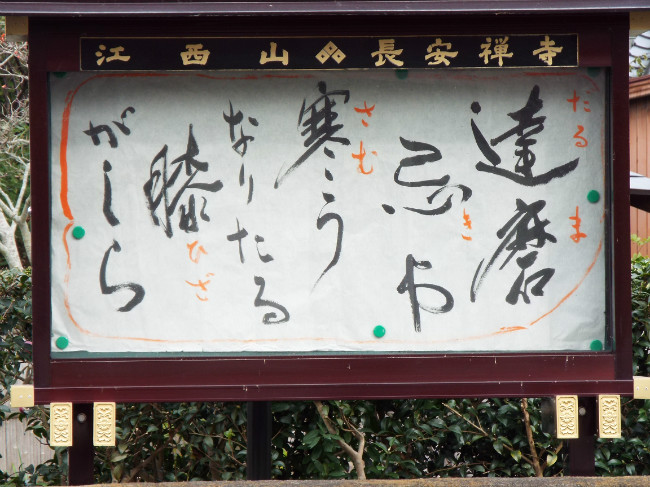 江西山 長安禅寺
達磨
だるま
忌や
き
寒う
さむ
なりたる
膝
ひざ
がしら